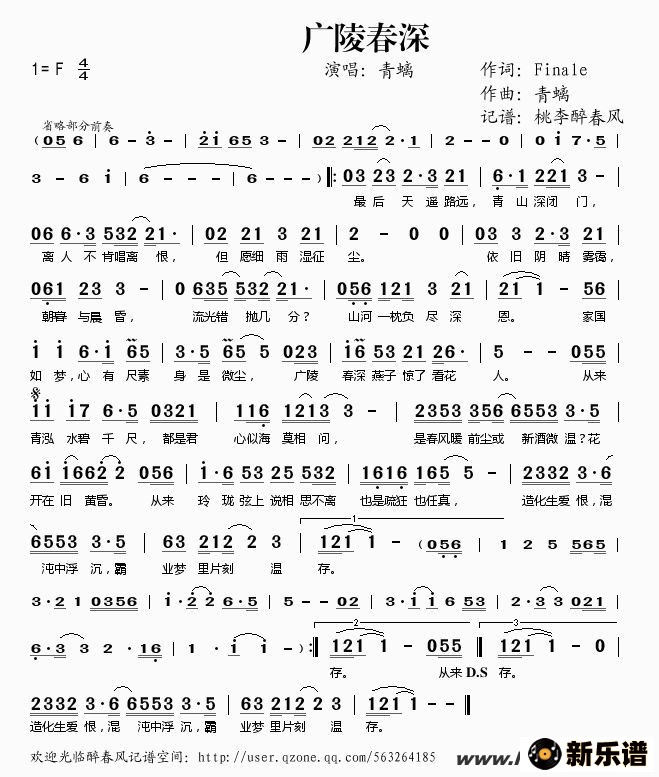 广陵春深
1=F 4/4 演唱：青螭 作词：Finale
作曲：青螭
记谱：桃李醉春风
省略部分前奏
(056 | 6-3- | 2i 65 3- | 02 212 2· | 2--0 | 0i7·5 |
3-6i | 6--- | ---) ‖: 03 23 2·3 21 | 6·1 221 3- |
最后 天遥路远，青山深闭门，
06 6·3 532 21· | 03 23 3 21 | 2-00 | 03 23 2·3 21 |
离人不肯唱离恨，但愿细雨湿征尘。依旧阴晴雾霭，
061 23 3- | 0 635 532 21· | 056 121 3 21 | 21 1- 56 |
朝暮与晨昏，流光错抛几分？山河一枕负尽深恩。家国
i i 6·i 65 | 3·5 65 5 023 | i6 53 21 26· | 5--055 |
如梦，心有尺素身是微尘，广陵春深燕子惊了看花人。从来
ii i7 6·5 0321 | 116 1213 3- | 2353 356 6553 3·5 |
青泓水碧千尺，都是君心似海莫相问，是春风暖前尘或新酒微温？花
6i i662 2 056 | i·6 53 25 532 | 1616 165 5- | 2332 3·6 |
开在旧黄昏。从来玲珑弦上说相思不离也是疏狂也任真，造化生爱恨，混
6553 3·5 | 63 212 2 3 | 1 121 1- | (056 | 1 2 5 565 |
沌中浮沉，霸业梦里片刻温存。
3·2 1 0356 | 1·2 2 6·5 | 5--02 | 3·i i 6 53 | 2·3 3 021 |
6·3 3 2·16 | 1·i i | i--) :‖ 2 121 1-055 ‖ 3 121 1-0 |
存。从来 D.S 存。
2332 3·6 6553 3·5 | 63 212 2 3 | 121 1-- ‖
造化生爱恨，混沌中浮沉，霸业梦里片刻温存。
欢迎光临醉春风记谱空间：http://user.qzone.qq.com/563264185 www. 新乐谱